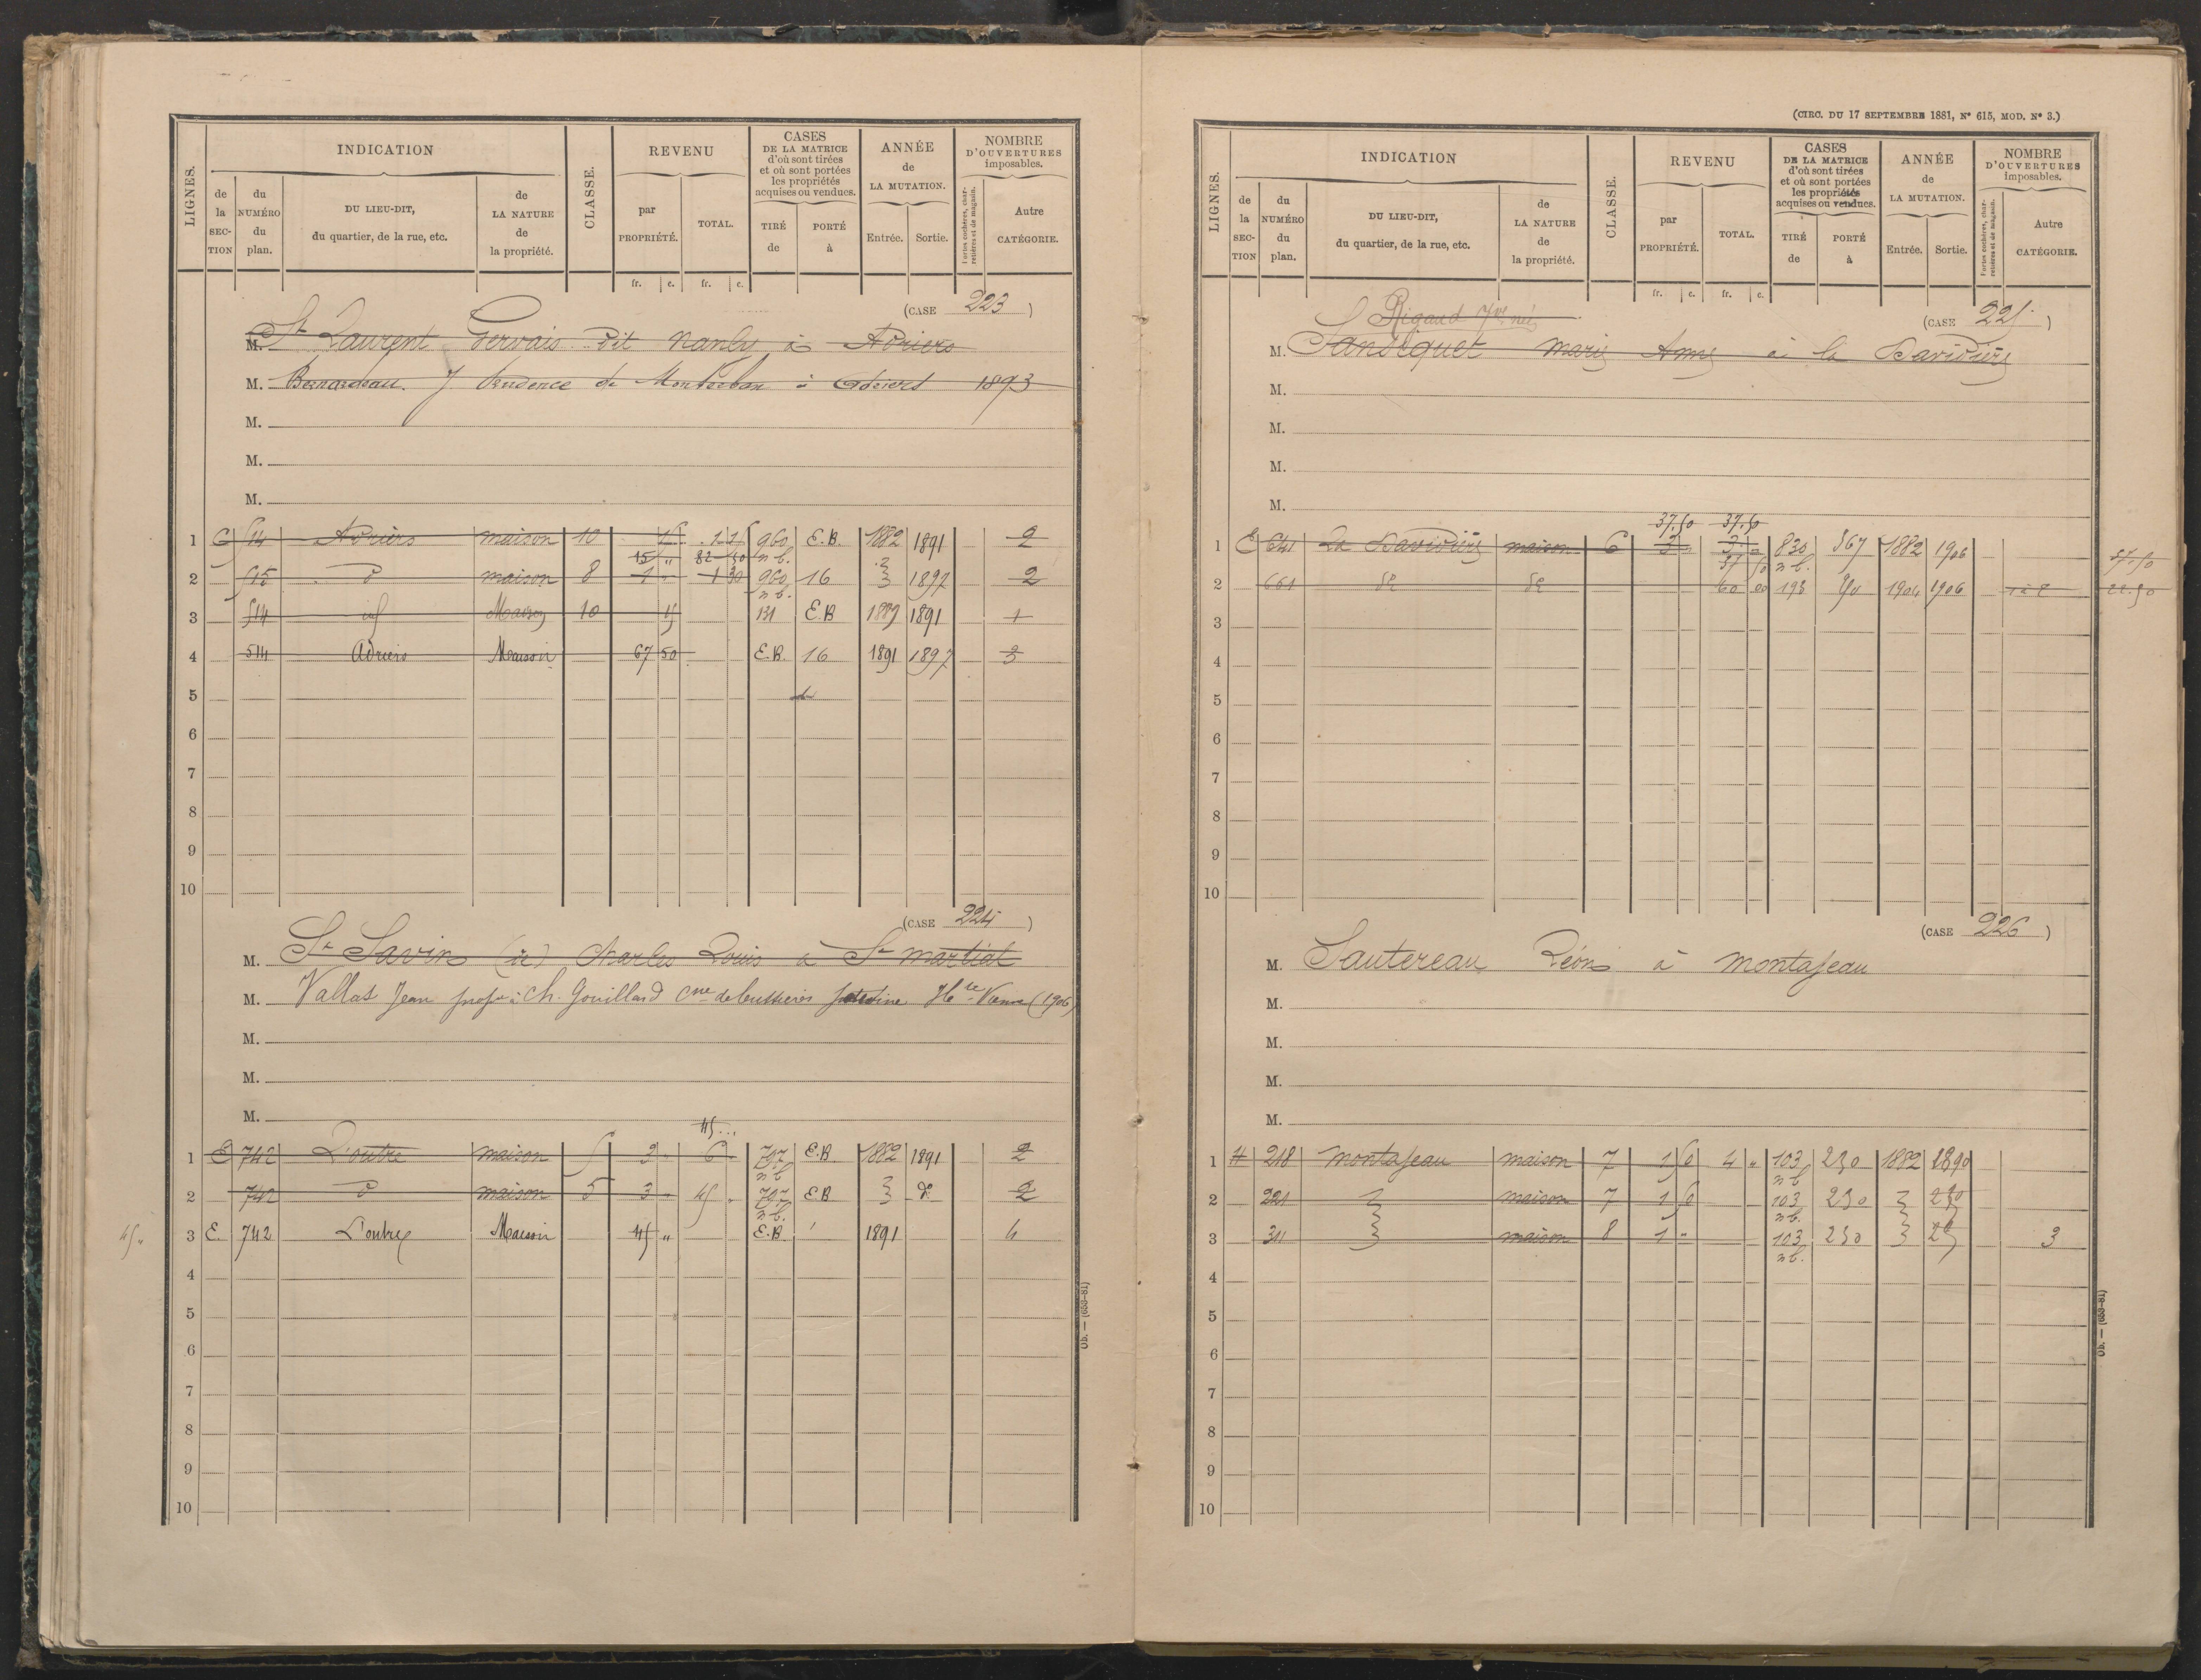 LIGNES. INDICATION CLASSE. REVENU CASES DE LA MATRICE d'où sont tirées et où sont portées les propriétés acquises ou vendues. ANNÉE de LA MUTATION. NOMBRE D'OUVERTURES imposables.
de la SECTION du NUMÉRO du plan. DU LIEU-DIT, du quartier, de la rue, etc. de LA NATURE de la propriété. par PROPRIÉTÉ. TOTAL. TIRÉ de PORTÉ à Entrée. Sortie. Portes cochères, charretières et de magasin. Autre CATÉGORIE.
fr. c. fr. c.
(CASE 223)
M. St Laurent Gervais dit Nanly à Adriers
M. Bernardeau J. Prudence de à Adriers 1893
M.
M.
M.
1 514 Adriers maison 10 960 E.B. 1882 1891 2
n b.
2 515 d maison 8 1 " 1 30 960 16 1897 2
n b.
3 514 Maison 10 131 E.B 1889 1891 1
4 514 Adriers Maison 67 50 E.B. 16 1891 1897 3
5
6
7
8
9
10
(CASE 224)
M. St Savin (de) Charles Louis à St martial
M. Vallat Jean à ch. Gouillard cne de bussières Hte Vienne (1906)
M.
M.
M.
45
1 E 742 L'outre maison 5 3 " 6 " 797 E.B 1882 1891 2
n b
2 742 d maison 5 3 " 45 " 797 E.B 2
n b.
45 " 3 E. 742 L'outre Maison 45 " E.B 1891 4
4
5
6
7
8
9
10
Ob. — (653-81)
(CIRC. DU 17 SEPTEMBRE 1881, N° 615, MOD. N° 3.)
LIGNES. INDICATION CLASSE. REVENU CASES DE LA MATRICE d'où sont tirées et où sont portées les propriétés acquises ou vendues. ANNÉE de LA MUTATION. NOMBRE D'OUVERTURES imposables.
de la SECTION du NUMÉRO du plan. DU LIEU-DIT, du quartier, de la rue, etc. de LA NATURE de la propriété. par PROPRIÉTÉ. TOTAL. TIRÉ de PORTÉ à Entrée. Sortie. Portes cochères, charretières et de magasin. Autre CATÉGORIE.
fr. c. fr. c.
(CASE 225)
Rigaud Yve née
M. Marie Anne à la Davidière
M.
M.
M.
M.
37.50 37.50
1 E 641 La Davidière maison 6 3 " 3 " 830 567 1882 1906
n b.
37.50
2 661 de de 60 00 198 90 1904 1906 22.50
3
4
5
6
7
8
9
10
(CASE 226)
M. Sautereau Léon à montajeau
M.
M.
M.
M.
1 H 218 montajeau maison 7 1 50 4 " 103 230 1882 1890
n b
2 221 maison 7 1 50 103 230
n b.
3 311 maison 8 1 " 103 230 3
n b.
4
5
6
7
8
9
10
Ob. — (653-81)